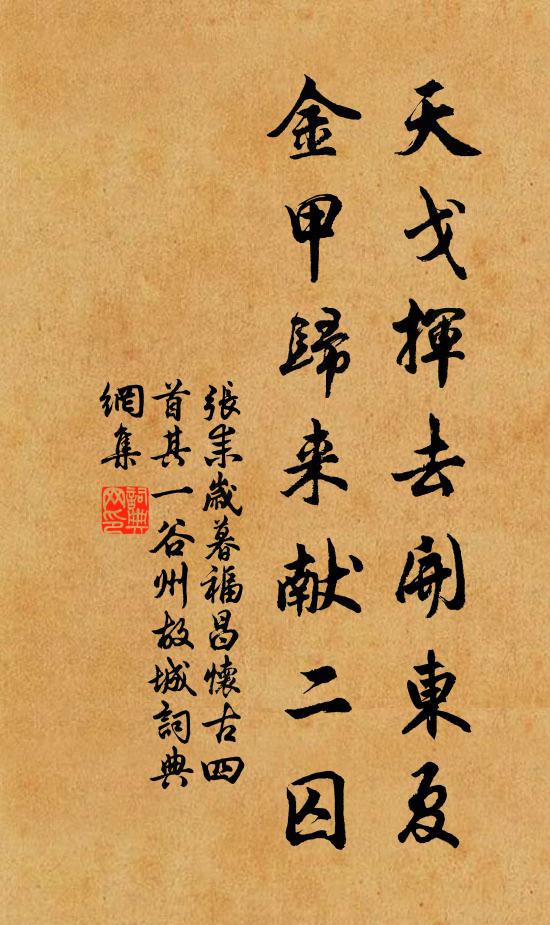 天戈揮去開東夏
金甲歸来献二囚
張耒歲暮福昌懷古四
首其一谷州故城詞典
網集
詞典
网印